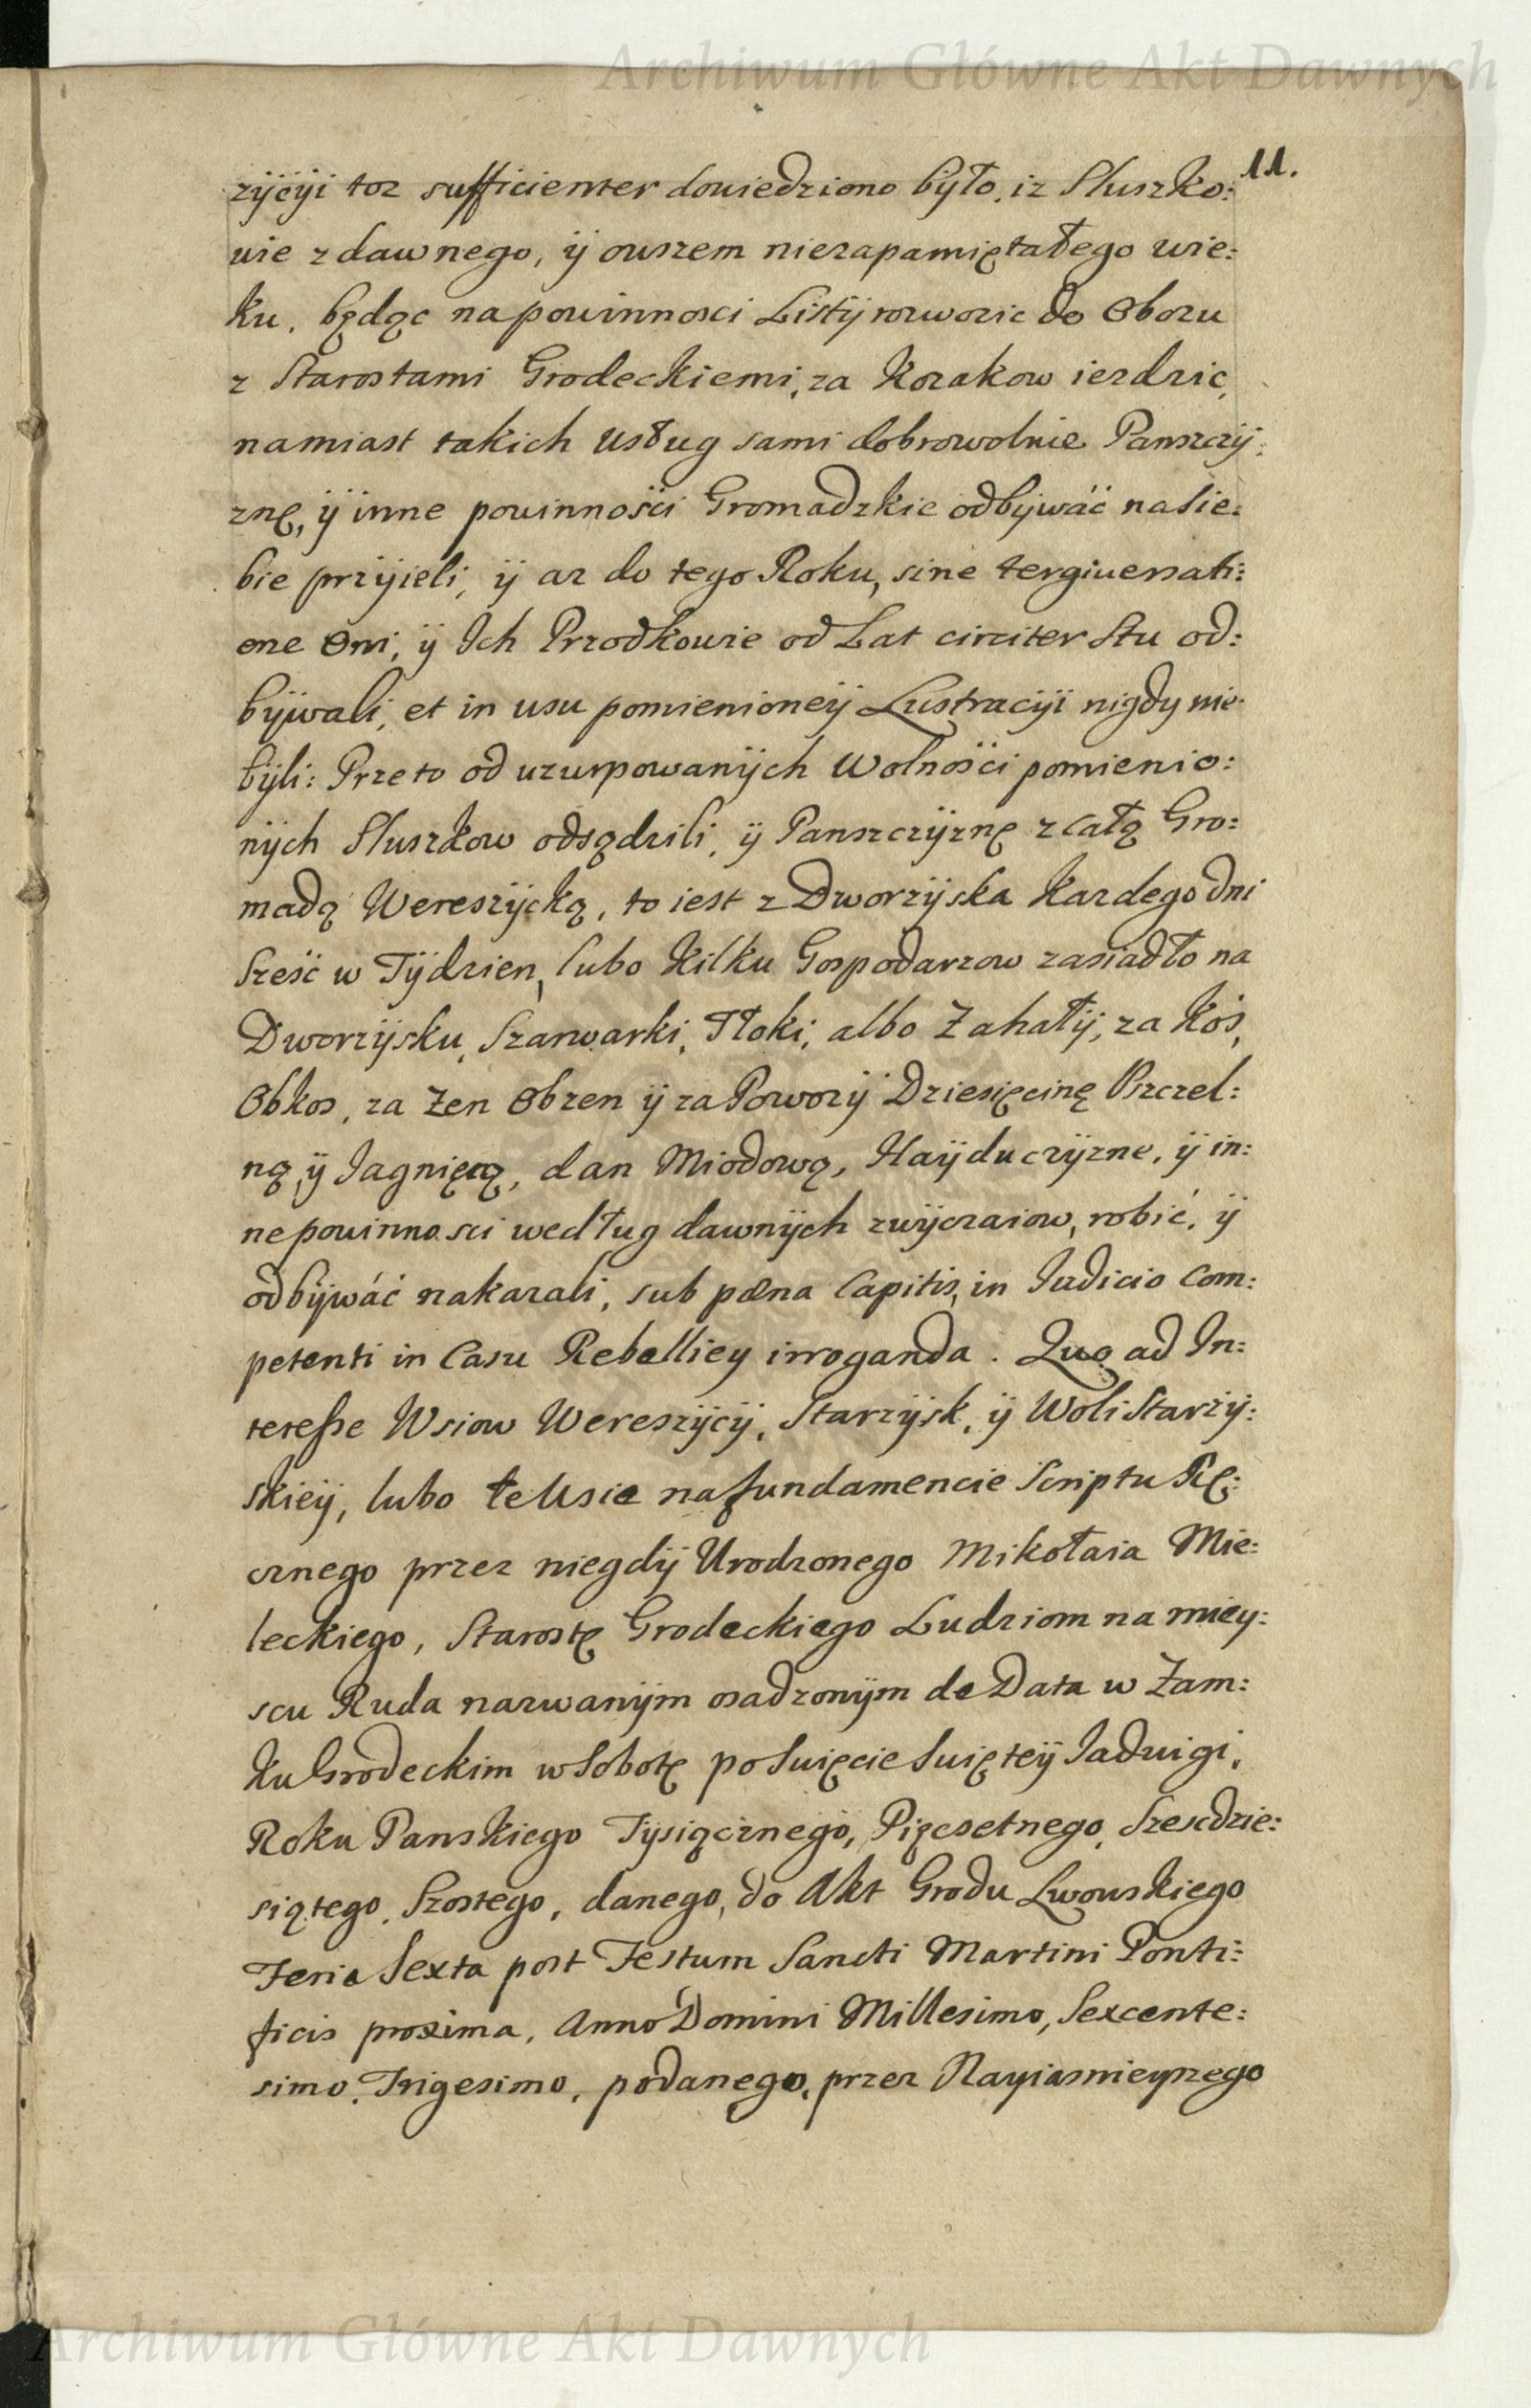 Archiwum Główne Akt Dawnych
11.
zÿcÿi toz sufficienter dowiedziono było, iz Sluszko:
wie z dawnego, ÿ owszem niezapamiętałego wie:
ku, będąc na powinnosci Listÿ rozwozic do Obozu
z Starostami Grodeckiemi, za Kozakow iezdzic,
namiast takich Usług sami dobrowolnie Panszczÿ:
znę, ÿ inne powinności Gromadzkie odbÿwáć na sie:
bie przÿieli, ÿ az do tego Roku, sine tergiuersati:
one Oni, ÿ Ich Przodkowie od Lat circiter Stu od:
bÿwali, et in usu pomienioneÿ Lustracÿi nigdy nie
bÿli: Przeto od uzurpowanÿch Wolności pomienio:
nÿch Sluszkow odsądzili, ÿ Panszczÿznę z całą Gro:
madą Wereszÿcką, to iest z Dworzÿska Kazdego dni
Sześć w Tÿdzien, lubo Kilku Gospodarzow zasiadło na
Dworzÿsku, Szarwarki, Tłoki, albo Zahałÿ, za Kós,
Obkos, za Zen Obzen ÿ za Powozÿ Dziesięcinę Pszczel:
ną, ÿ Jagnięcą, dan Miodową, Haÿduczÿzne, ÿ in:
ne powinnosci według dawnÿch zwÿczaiow, robić, ÿ
odbÿwáć nakazali, sub pœna Capitis, in Iudicio Com:
petenti in Casu Rebelliey irroganda. Quo ad In:
teresse Wsiow Wereszÿcÿ, Starzÿsk, ÿ Woli Starzÿ:
skieÿ, lubo te Wsie na fundamencie Scriptu Rę:
cznego przez niegdÿ Urodzonego Mikołaia Mie:
leckiego, Starostę Grodeckiego Ludziom na miey:
scu Ruda nazwanÿm osadzonÿm de Data w Zam:
ku Grodeckim w Sobotę po Swięcie Swięteÿ Jadwigi,
Roku Panskiego Tysiącznego, Pięcsetnego, Szescdzie:
siątego, Szostego, danego, do Akt Grodu Lwowskiego
Feria Sexta post Festum Sancti Martini Ponti:
ficis proxima, Anno Domini Millesimo, Sexcente:
simo, Trigesimo, podanego, przez Nayiasnieyszego
Archiwum Główne Akt Dawnych